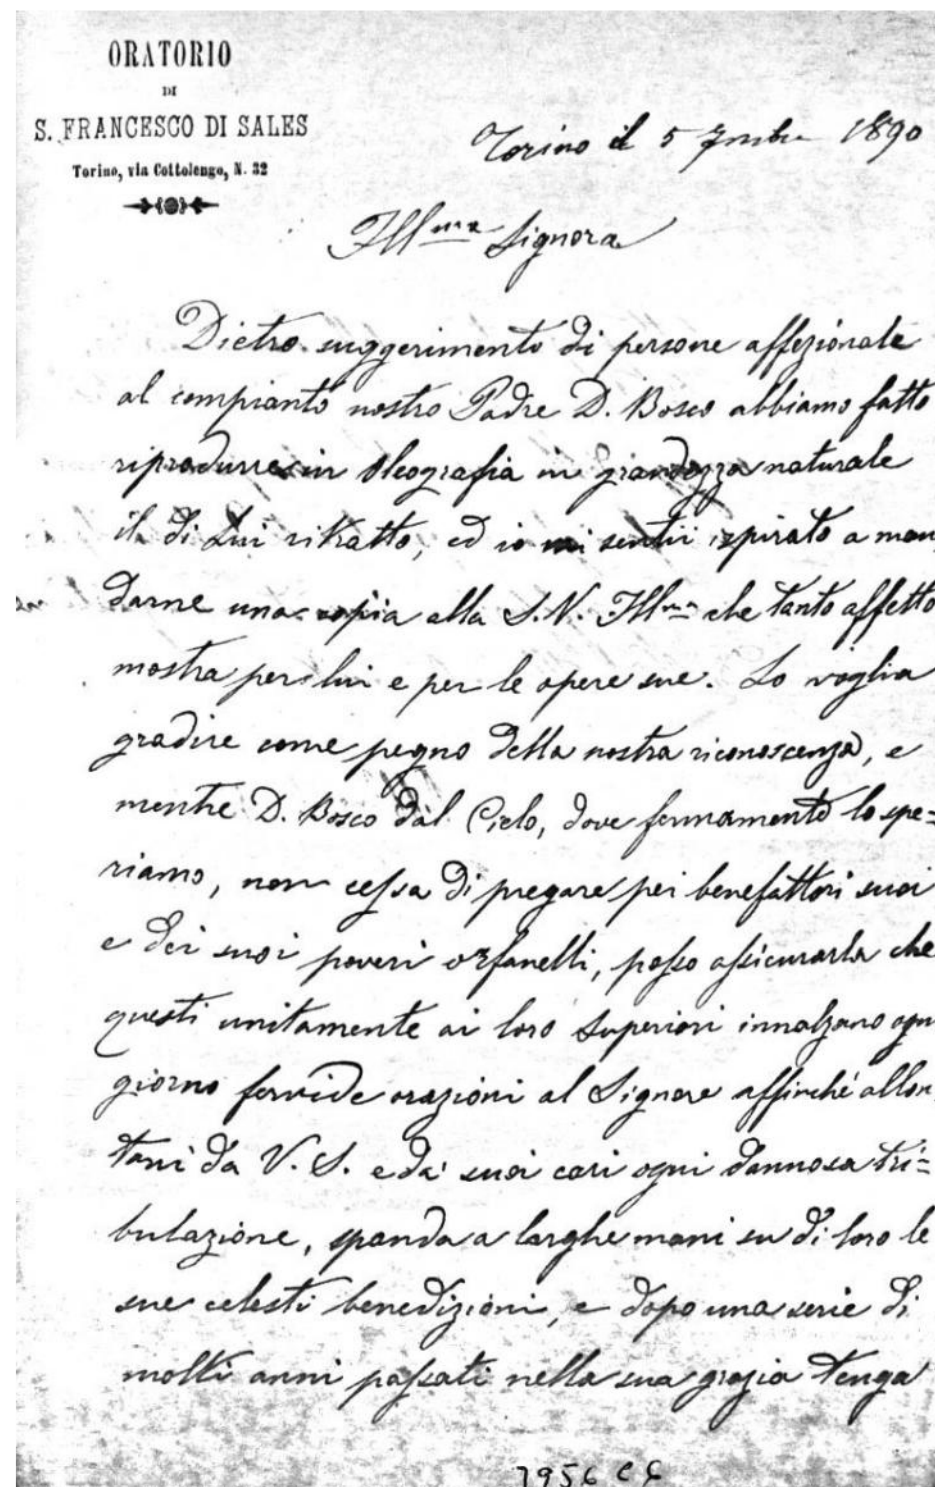 ORATORIO
DI
S. FRANCESCO DI SALES
Torino, via Cottolengo, N. 32
Torino il 5 7mbre 1890
Ill.ma Signora
Dietro suggerimento di persone affezionate
al compianto nostro Padre D. Bosco abbiamo fatto
riprodurre in oleografia in grandezza naturale
il di Lui ritratto, ed io mi sentii ispirato a man
darne una copia alla S.V. Ill.ma che tanto affetto
mostra per lui e per le opere sue. Lo voglia
gradire come pegno della nostra riconoscenza, e
mentre D. Bosco dal Cielo, dove fermamente lo spe=
riamo, non cessa di pregare pei benefattori suoi
e dei suoi poveri orfanelli, posso assicurarla che
questi unitamente ai loro Superiori innalzano ogni
giorno fervide orazioni al Signore affinché allon
tani da V. S. e da' suoi cari ogni dannosa tri=
bulazione, spanda a larghe mani su di loro le
sue celesti benedizioni, e dopo una serie di
molti anni passati nella sua grazia tenga